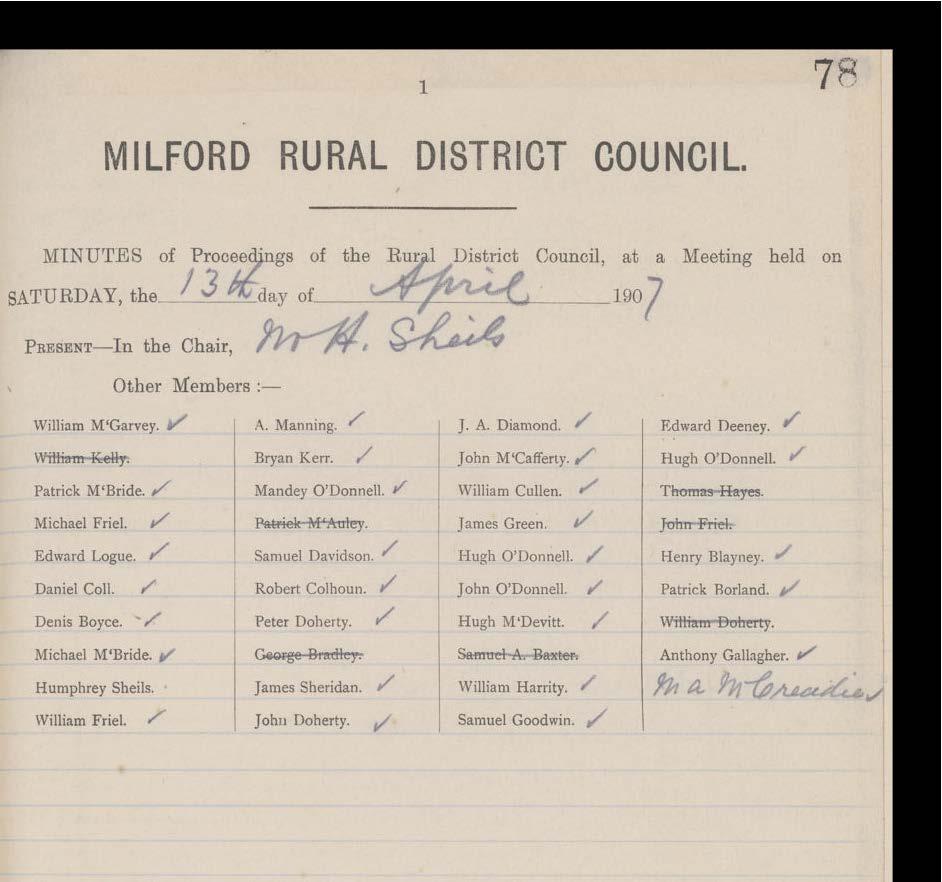 78
1
MILFORD RURAL DISTRICT COUNCIL.
MINUTES of Proceedings of the Rural District Council, at a Meeting held on
SATURDAY, the 13th day of April 1907
PRESENT—In the Chair, Mr H. Sheils
Other Members :—
William M‘Garvey. ✓
William Kelly.
Patrick M‘Bride. ✓
Michael Friel. ✓
Edward Logue. ✓
Daniel Coll. ✓
Denis Boyce. ✓
Michael M‘Bride. ✓
Humphrey Sheils.
William Friel. ✓
A. Manning. ✓
Bryan Kerr. ✓
Mandey O’Donnell. ✓
Patrick M‘Auley.
Samuel Davidson. ✓
Robert Colhoun. ✓
Peter Doherty. ✓
George Bradley.
James Sheridan. ✓
John Doherty. ✓
J. A. Diamond. ✓
John M‘Cafferty. ✓
William Cullen. ✓
James Green. ✓
Hugh O’Donnell. ✓
John O’Donnell. ✓
Hugh M‘Devitt. ✓
Samuel A. Baxter.
William Harrity. ✓
Samuel Goodwin. ✓
Edward Deeney. ✓
Hugh O’Donnell. ✓
Thomas Hayes.
John Friel.
Henry Blayney. ✓
Patrick Borland. ✓
William Doherty.
Anthony Gallagher. ✓
M a McCreadie ✓